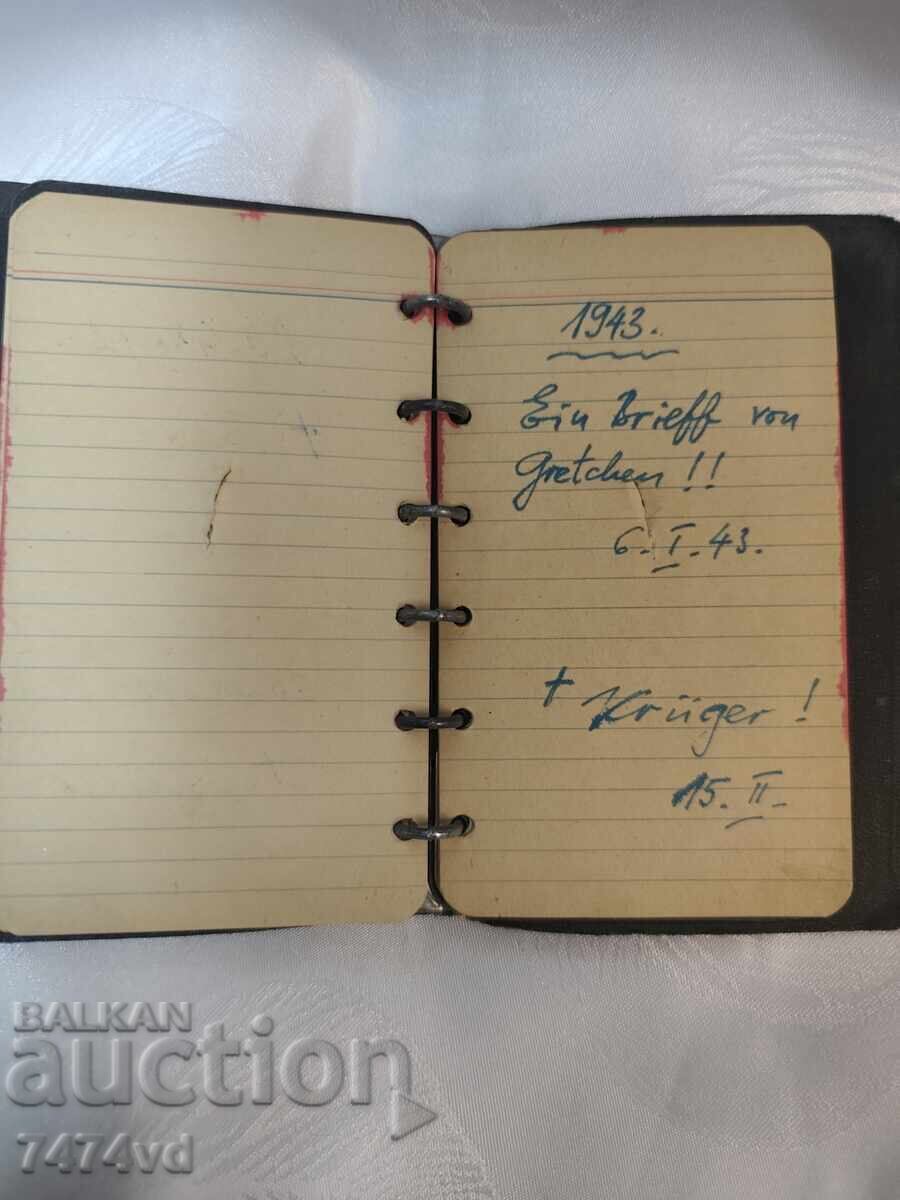 1943.
Ein Brieff von
Gretchen !!
6. I. 43.
+ Krüger !
15. II.
BALKAN
auction
7474vd